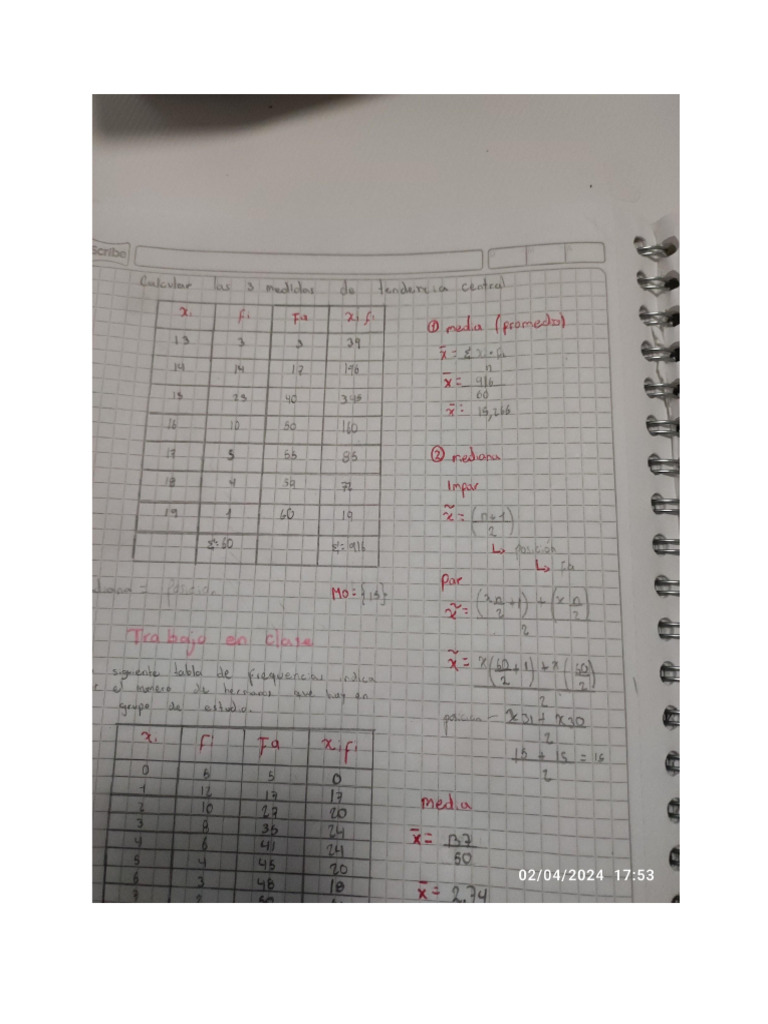 Scribe
Calcular las 3 medidas de tendencia central
xi fi Fa xi fi
13 3 3 39
14 14 17 196
15 23 40 345
16 10 50 160
17 5 55 85
18 4 59 72
19 1 60 19
Σ=60 Σ=916
Mo={15}
① media (promedio)
x̄ = Σ xi · fi
n
x̄ = 916
60
x̄ = 15,266
② mediana
Impar
x̃ = (n+1)
2
↳ posición
↳ Fa
Par
x̃ = (x n/2 + 1) + (x n/2)
2
x̃ = x(60/2 + 1) + x(60/2)
2
posición - x31 + x30
2
15 + 15 = 15
2
Trabajo en clase
siguiente tabla de frecuencias indica
el número de hermanos que hay en
grupo de estudio.
xi fi Fa xi fi
0 5 5 0
1 12 17 17
2 10 27 20
3 8 35 24
4 6 41 24
5 4 45 20
6 3 48 18
7 2 50
media
x̄ = 137
50
x̄ = 2,74
02/04/2024 17:53